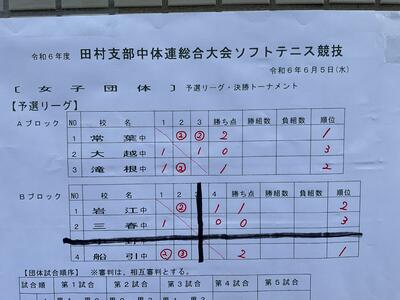 令和６年度 田村支部中体連総合大会ソフトテニス競技
令和６年６月５日(水)
［ 女子団体 ］ 予選リーグ・決勝トーナメント
【予選リーグ】
Aブロック NO 校名 1 2 3 勝ち点 勝組数 負組数 順位
1 常葉中 ② ② 2 1
2 大越中 1 1 0 3
3 滝根中 1 ② 1 2
Bブロック NO 校名 1 2 4 勝ち点 勝組数 負組数 順位
1 岩江中 ② 1 1 2
2 三春中 1 0 0 3
4 船引中 ② ③ 2 1
【団体試合順序】 ※審判は、相互審判とする。
第１試合 第２試合 第３試合 第４試合 第５試合